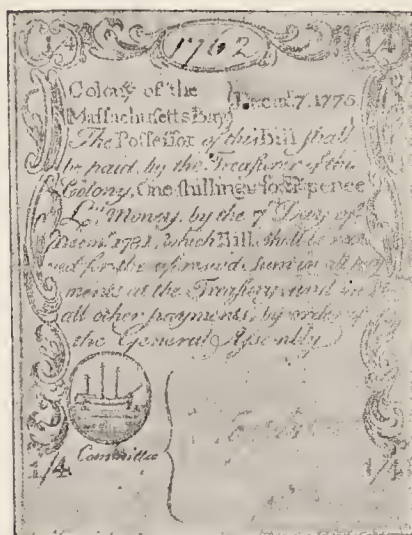 1/4 1762 1/4
Colony of the
Massachusetts Bay } Decem.r 7. 1775
The Possessor of this Bill shall
be paid, by the Treasurer of this
Colony, One shilling & four pence
L. Money, by the 7 Day of
Decem.r 1781, which Bill shall be
for the aforesaid Sum in all
ments at the Treasury, and in
all other payments, by order of
the General Assembly
Committee
1/4 1/4